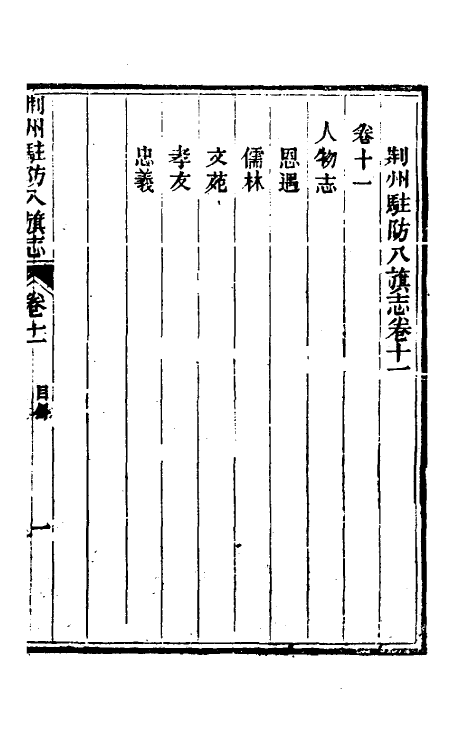 荆州駐防八旗志卷十一
卷十一
人物志
恩遇
儒林
文苑
孝友
忠義
荆州駐防八旗志
卷十一
目錄
一